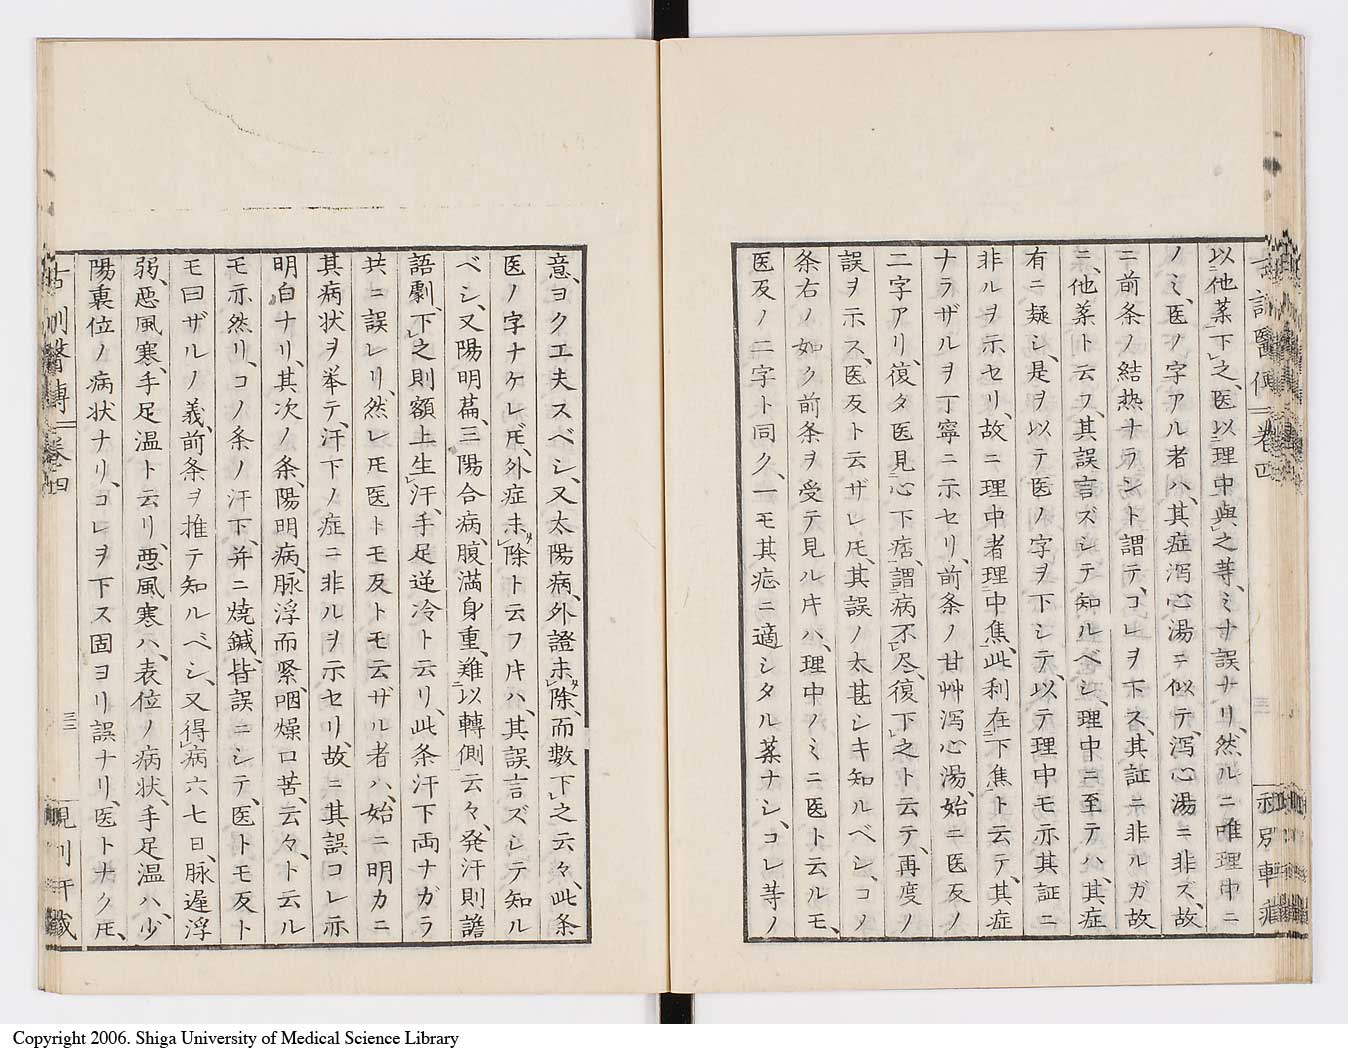 以他薬下之、医以理中與之等、ミナ誤ナリ、然ルニ唯理中ニ
ノミ、医ノ字アル者ハ、其症瀉心湯ニ似テ、瀉心湯ニ非ズ、故
ニ前条ノ結熱ナラント謂テ、コレヲ下ス、其証ニ非ルガ故
ニ、他薬ト云フ、其誤言ズシテ知ルベシ、理中ニ至テハ、其症
有ニ疑シ、是ヲ以テ医ノ字ヲ下シテ、以テ理中モ亦其証ニ
非ルヲ示セリ、故ニ理中者理中焦、此利在下焦ト云テ、其症
ナラザルヲ丁寧ニ示セリ、前条ノ甘艸瀉心湯、始ニ医反ノ
二字アリ、復タ医見心下痞、謂病不尽、復下之ト云テ、再度ノ
誤ヲ示ス、医反ト云ザレ𪜈、其誤ノ太甚シキ知ルベシ、コノ
条右ノ如ク前条ヲ受テ見ル片ハ、理中ノミニ医ト云ルモ、
医反ノ二字ト同ク、一モ其症ニ適シタル薬ナシ、コレ等ノ
意、ヨク工夫スベシ、又太陽病、外證未除、而數下之云々、此条
医ノ字ナケレ𪜈、外症未除ト云フ片ハ、其誤言ズシテ知ル
ベシ、又陽明篇、三陽合病、腹満身重、難以轉側云々、発汗則譫
語劇、下之則額上生汗、手足逆冷ト云リ、此条汗下両ナガラ
共ニ誤レリ、然レ𪜈医トモ反トモ云ザル者ハ、始ニ明カニ
其病状ヲ挙テ、汗下ノ症ニ非ルヲ示セリ、故ニ其誤コレ亦
明白ナリ、其次ノ条、陽明病、脉浮而緊、咽燥口苦、云々、ト云ル
モ亦然リ、コノ条ノ汗下、并ニ焼鍼、皆誤ニシテ、医トモ反ト
モ曰ザルノ義、前条ヲ推テ知ルベシ、又得病六七日、脉遅浮
弱、悪風寒、手足温ト云リ、悪風寒ハ、表位ノ病状、手足温ハ、少
陽裏位ノ病状ナリ、コレヲ下ス固ヨリ誤ナリ、医トナク𪜈、
古訓醫傳
卷四
三三
Copyright 2006. Shiga University of Medical Science Library